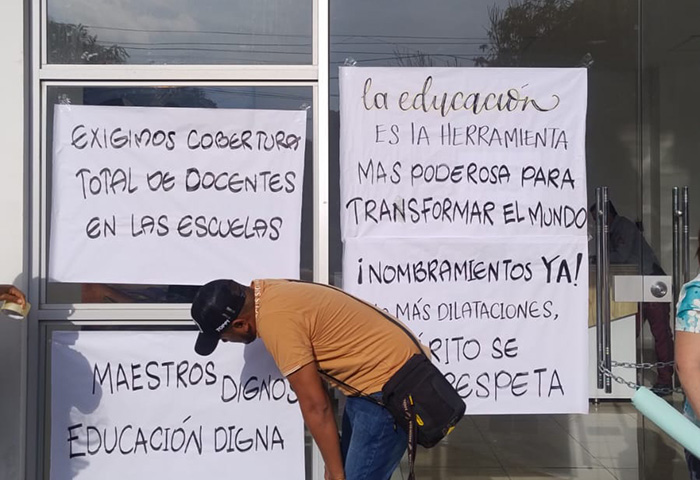 EXIGIMOS COBERTURA
TOTAL DE DOCENTES
EN LAS ESCUELAS
la educación
ES LA HERRAMIENTA
MAS PODEROSA PARA
TRANSFORMAR EL MUNDO
¡NOMBRAMIENTOS YA!
MÁS DILATACIONES,
SE
MAESTROS DIGNOS
EDUCACIÓN DIGNA